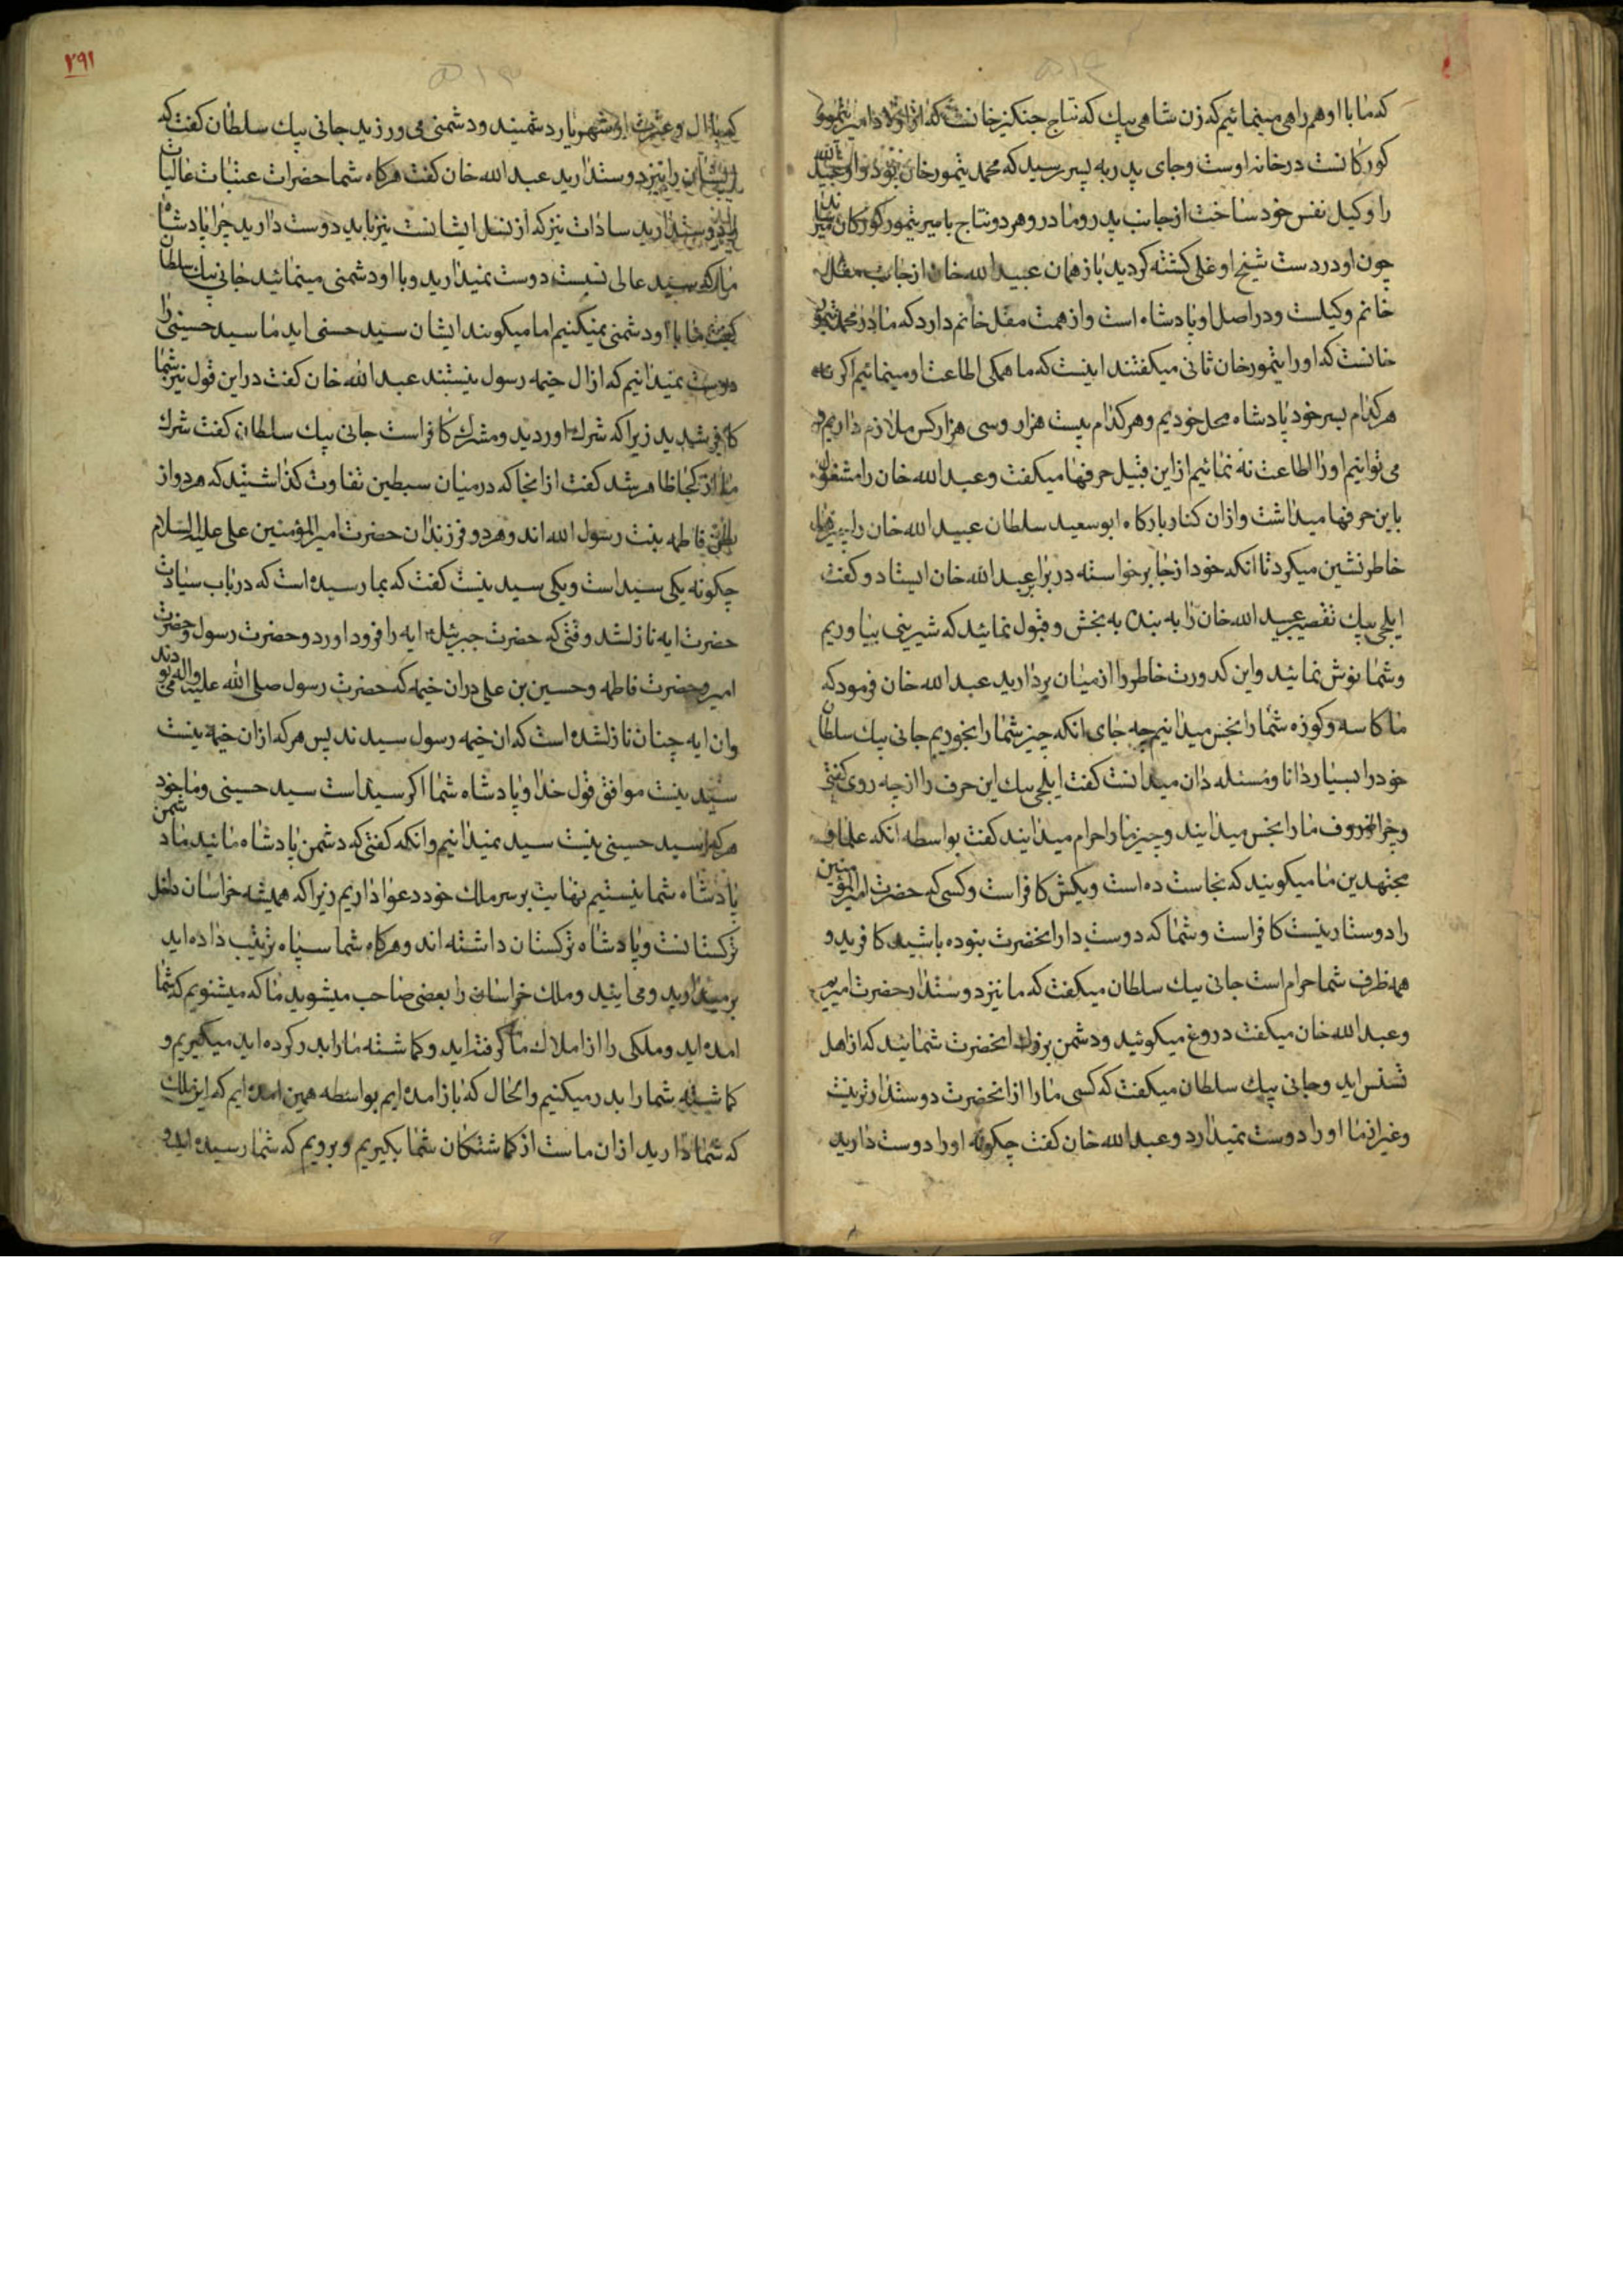 که ما با او هم راهی مینمائیم که زن شاهی بیك که نتاج جنکیز خانست که از اولاد امیر تیمور
کورکانست در خانه اوست و جای پدر به پسر رسید که محمد تیمور خان بود و او عبید الله
را وکیل نفس خود ساخت از جانب پدر و مادر و هر دو نتاج با میر تیمور کورکان میرسانند
چون او در دست شیخ اوغلی کشته کردید باز همان عبید الله خان از جانب مغل
خانم وکیلست و در اصل او پادشاه است و از همت مغل خانم دارد که مادر محمد تیمور
خانست که او را تیمور خان ثانی میکفتند اینست که ما همکی اطاعت او مینمائیم اکر نه
هر کدام بسر خود پادشاه محل خودیم و هر کدام بیست هزار و سی هزار کس ملازم داریم
می توانیم او را اطاعت نه نمائیم از این قبیل حرفها میکفت و عبد الله خان را مشغول
باین حرفها میداشت و از ان کنار بارکاه ابو سعید سلطان عبید الله خان را
خاطر نشین میکرد تا انکه خود از جا بر خواسته در برابر عبد الله خان ایستاد و کفت
ایلچی بیك تقصیر عبید الله خان را به بنده به بخش و قبول نمائید که شیرینی بیاوریم
و شما نوش نمائید و این کدورت خاطر را از میان بردارید عبد الله خان فرمود که
ما کاسه و کوزه شما را نجس میدانیم چه جای انکه چیز شما را بخوریم جانی بیك سلطان
خود را بسیار دانا و مسئله دان میدانست کفت ایلچی بیك این حرف را از چه روی کفتی
و چرا ظروف ما را نجس میدانید و چیز ما را حرام میدانید کفت بواسطه انکه علما و
مجتهدین ما میکویند که نجاست ده است و یکیش کافر است و کسی که حضرت امیر المؤمنین
را دوستار نیست کافر است و شما که دوست دار انحضرت نبوده باشید کافرید و
همه ظرف شما حرام است جانی بیك سلطان میکفت که ما نیز دوستدار حضرت امیریم
و عبد الله خان میکفت دروغ میکوئید و دشمن بزرك انحضرت شمائید که از اهل
تسنن اید و جانی بیك سلطان میکفت که کسی ما را از انحضرت دوستدار تر نیست
و غیر از ما او را دوست نمیدارد و عبد الله خان کفت چکونه او را دوست دارید
۲۹۱
که با ال و عترت او شهریار دشمنید و دشمنی می ورزید جانی بیك سلطان کفت که
ایشان را نیز دوستدارید عبد الله خان کفت هرکاه شما حضرات عتبات عالیات
را دوستدارید سادات نیز که از نسل ایشانست نیز باید دوست دارید چرا پادشاه
ما را که سید عالی نسبست دوست نمیدارید و با او دشمنی مینمائید جانی بیك سلطان
کفت ما با او دشمنی نمیکنیم اما میکویند ایشان سید حسنی اید ما سید حسینی را
دوست نمیدانیم که از ال خیمه رسول نیستند عبد الله خان کفت در این قول نیز شما
کافر شدید زیرا که شرك اوردید و مشرك کافر است جانی بیك سلطان کفت شرك
ما از کجا ظاهر شد کفت از انجا که در میان سبطین تفاوت کذاشتید که هر دو از
بطن فاطمه بنت رسول الله اند و هر دو فرزندان حضرت امیر المؤمنین علی علیه السلام
چکونه یکی سید است و یکی سید نیست کفت که بما رسیده است که در باب سیادت
حضرت ایه نازلشد وقتی که حضرت جبرئیل ایه را فرود اورد و حضرت رسول و حضرت
امیر و حضرت فاطمه و حسین بن علی در ان خیمه که حضرت رسول صلی الله علیه و اله می بودند
و ان ایه چنان نازلشده است که ان خیمه رسول سیدند پس هر که از ان خیمه نیست
سید نیست موافق قول خدا و پادشاه شما اکر سید است سید حسینی و ما خود
هر که را سید حسینی نیست سید نمیدانیم و انکه کفتی که دشمن پادشاه مائید ما دشمن
پادشاه شما نیستیم نهایت بر سر ملك خود دعوا داریم زیرا که همیشه خراسان داخل
ترکستانست و پادشاه ترکستان داشته اند و هرکاه شما سپاه ترتیب داده اید
بر میدارید و می ایئید و ملك خراسان را بعضی صاحب میشوید ما که میشنویم که شما
امده اید و ملکی را از املاك ما کرفته اید و کماشته ما را بدر کرده اید میکیریم و
کماشته شما را بدر میکنیم و الحال که باز امده ایم بواسطه همین امده ایم که این ملك
که شما دارید از ان ماست از کماشتکان شما بکیریم و برویم که شما رسیده اید و